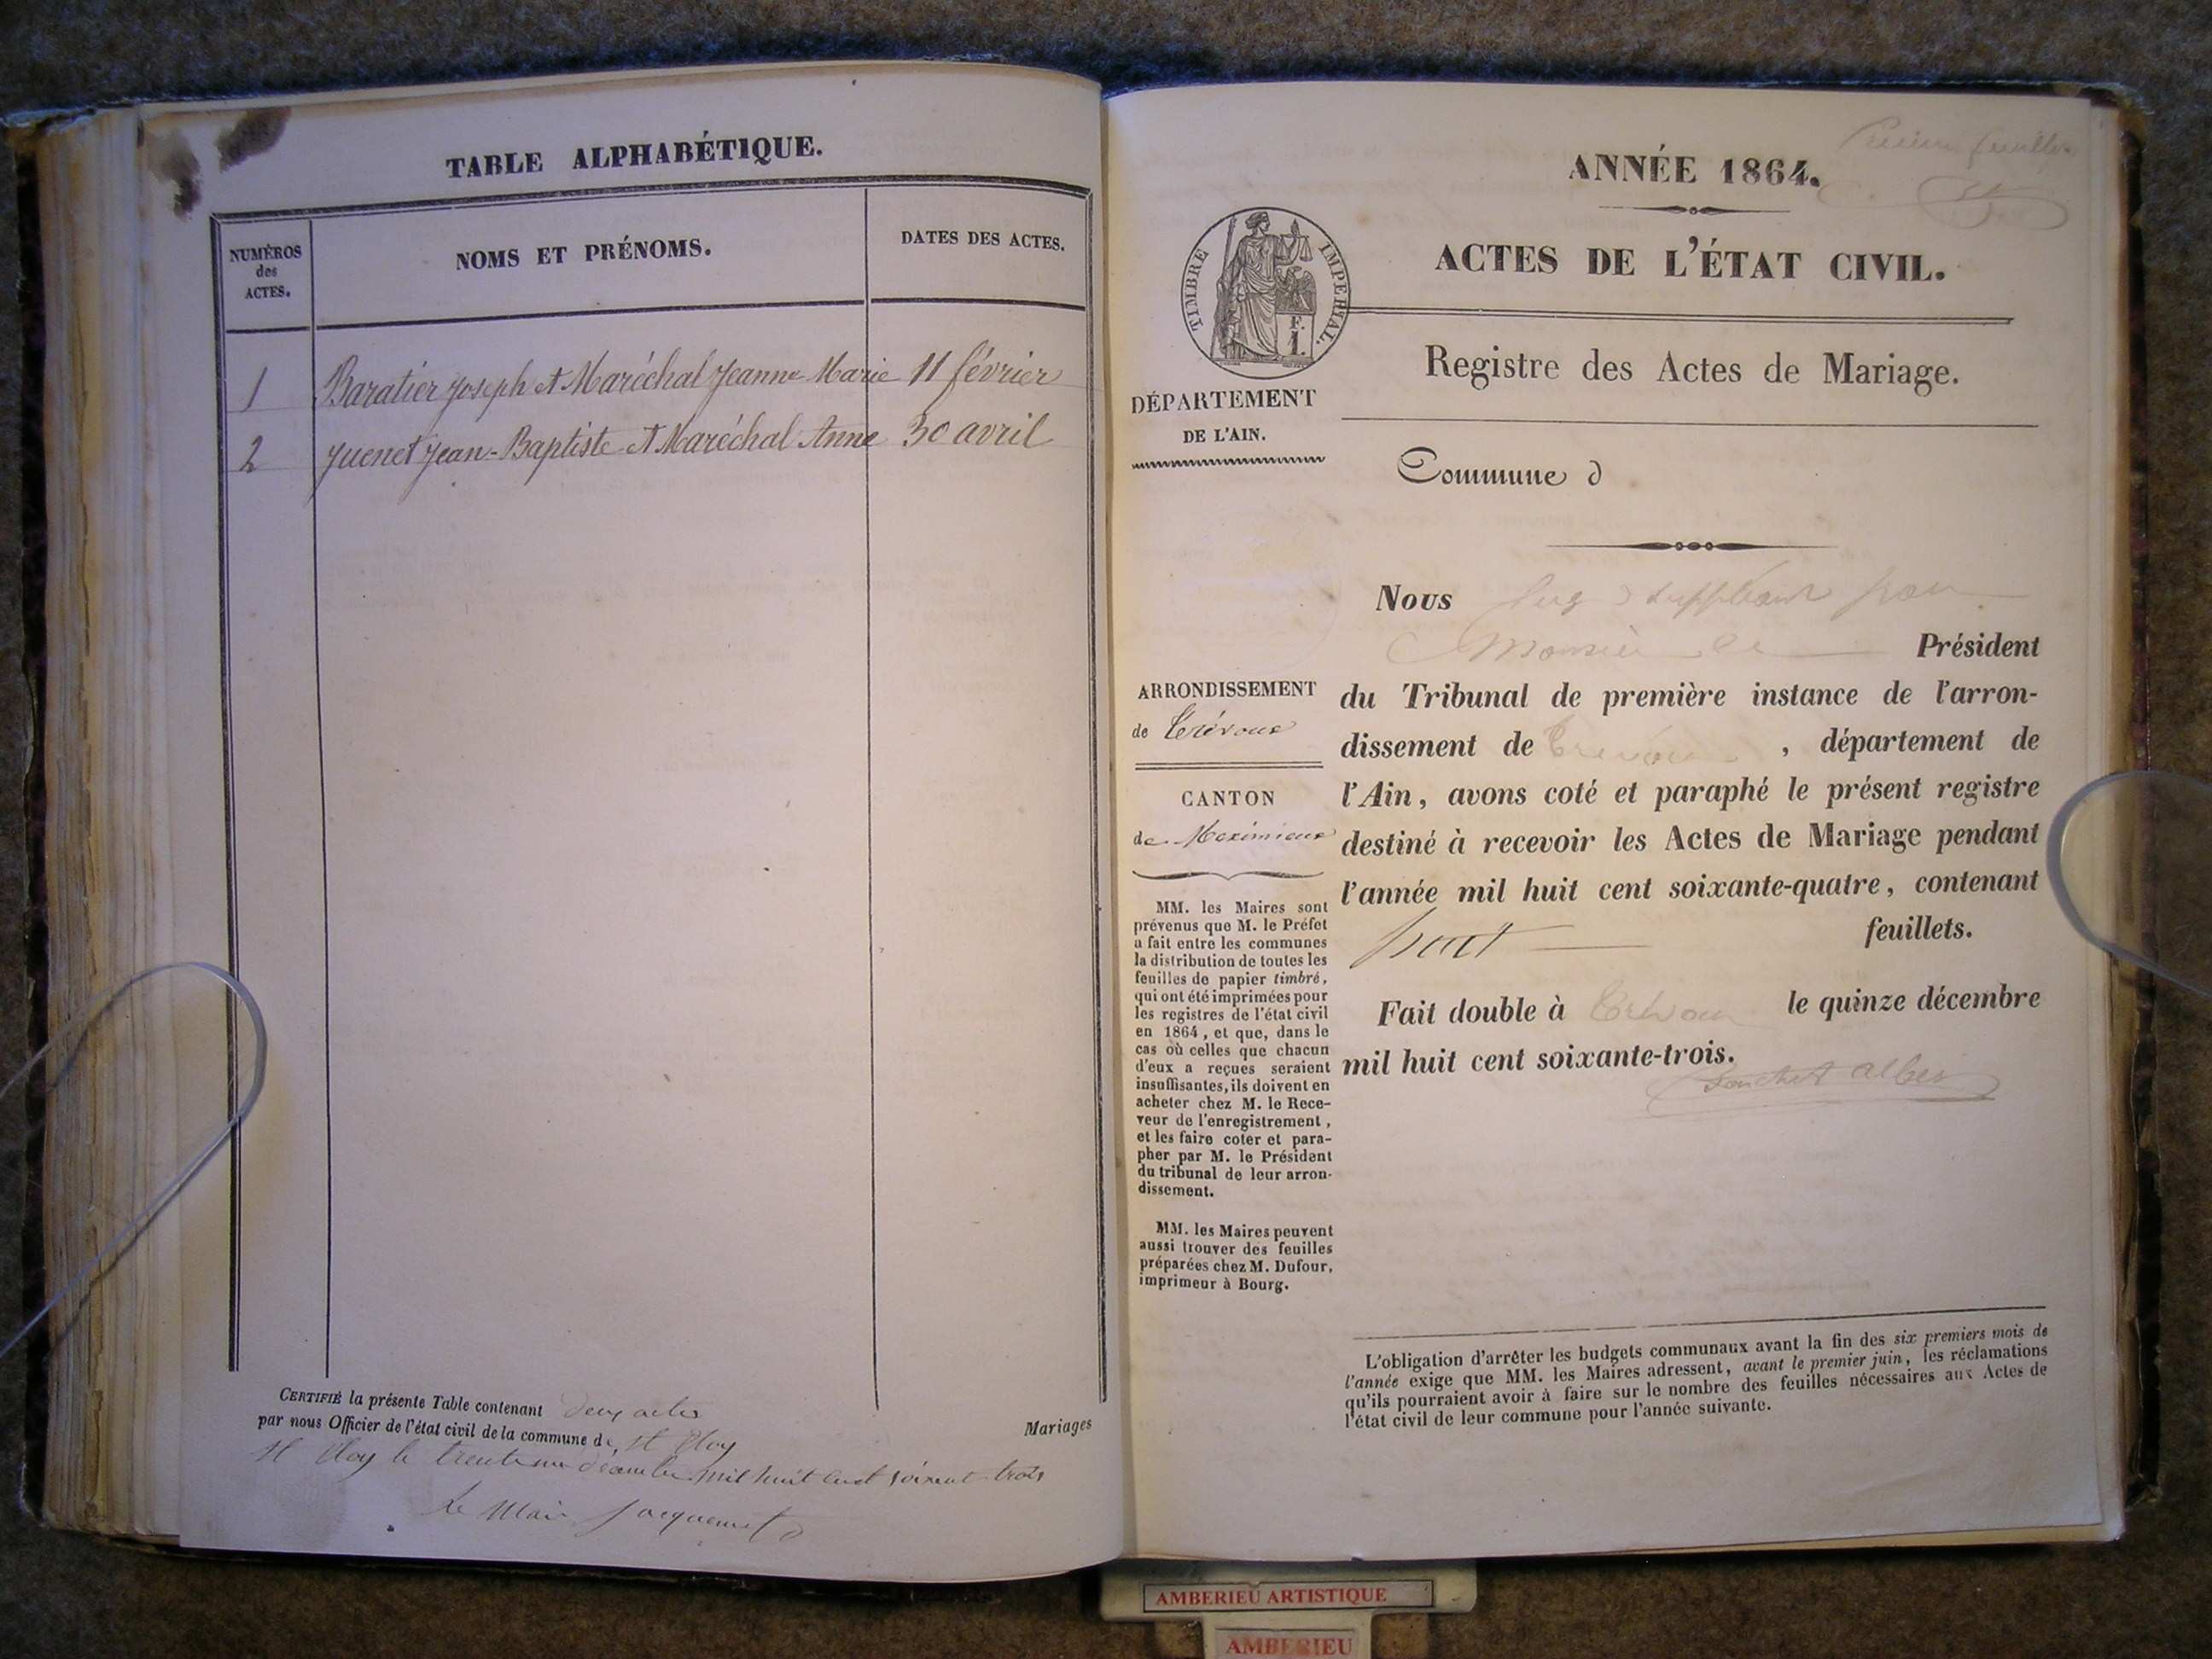 TABLE ALPHABÉTIQUE.
NUMÉROS
des
ACTES.
NOMS ET PRÉNOMS.
DATES DES ACTES.
1 Baratier Joseph et Maréchal Jeanne Marie 11 février
2 Juenet Jean-Baptiste et Maréchal Anne 30 avril
CERTIFIÉ la présente Table contenant deux actes
par nous Officier de l'état civil de la commune de St Eloy
St Eloy le trente un décembre mil huit cent soixante trois
Le Maire Jacquemet
Mariages
ANNÉE 1864.
ACTES DE L'ÉTAT CIVIL.
TIMBRE IMPERIAL.
F.
1.
Registre des Actes de Mariage.
DÉPARTEMENT
DE L'AIN.
Commune d
ARRONDISSEMENT
de Trévoux
CANTON
de Meximieux
MM. les Maires sont
prévenus que M. le Préfet
a fait entre les communes
la distribution de toutes les
feuilles de papier timbré,
qui ont été imprimées pour
les registres de l'état civil
en 1864, et que, dans le
cas où celles que chacun
d'eux a reçues seraient
insuffisantes, ils doivent en
acheter chez M. le Rece-
veur de l'enregistrement,
et les faire coter et para-
pher par M. le Président
du tribunal de leur arron-
dissement.
MM. les Maires peuvent
aussi trouver des feuilles
préparées chez M. Dufour,
imprimeur à Bourg.
Nous Juge suppléant pour
Monsieur le Président
du Tribunal de première instance de l'arron-
dissement de Trévoux, département de
l'Ain, avons coté et paraphé le présent registre
destiné à recevoir les Actes de Mariage pendant
l'année mil huit cent soixante-quatre, contenant
huit feuillets.
Fait double à Trévoux le quinze décembre
mil huit cent soixante-trois.
L'obligation d'arrêter les budgets communaux avant la fin des six premiers mois de
l'année exige que MM. les Maires adressent, avant le premier juin, les réclamations
qu'ils pourraient avoir à faire sur le nombre des feuilles nécessaires aux Actes de
l'état civil de leur commune pour l'année suivante.
AMBERIEU ARTISTIQUE
AMBERIEU